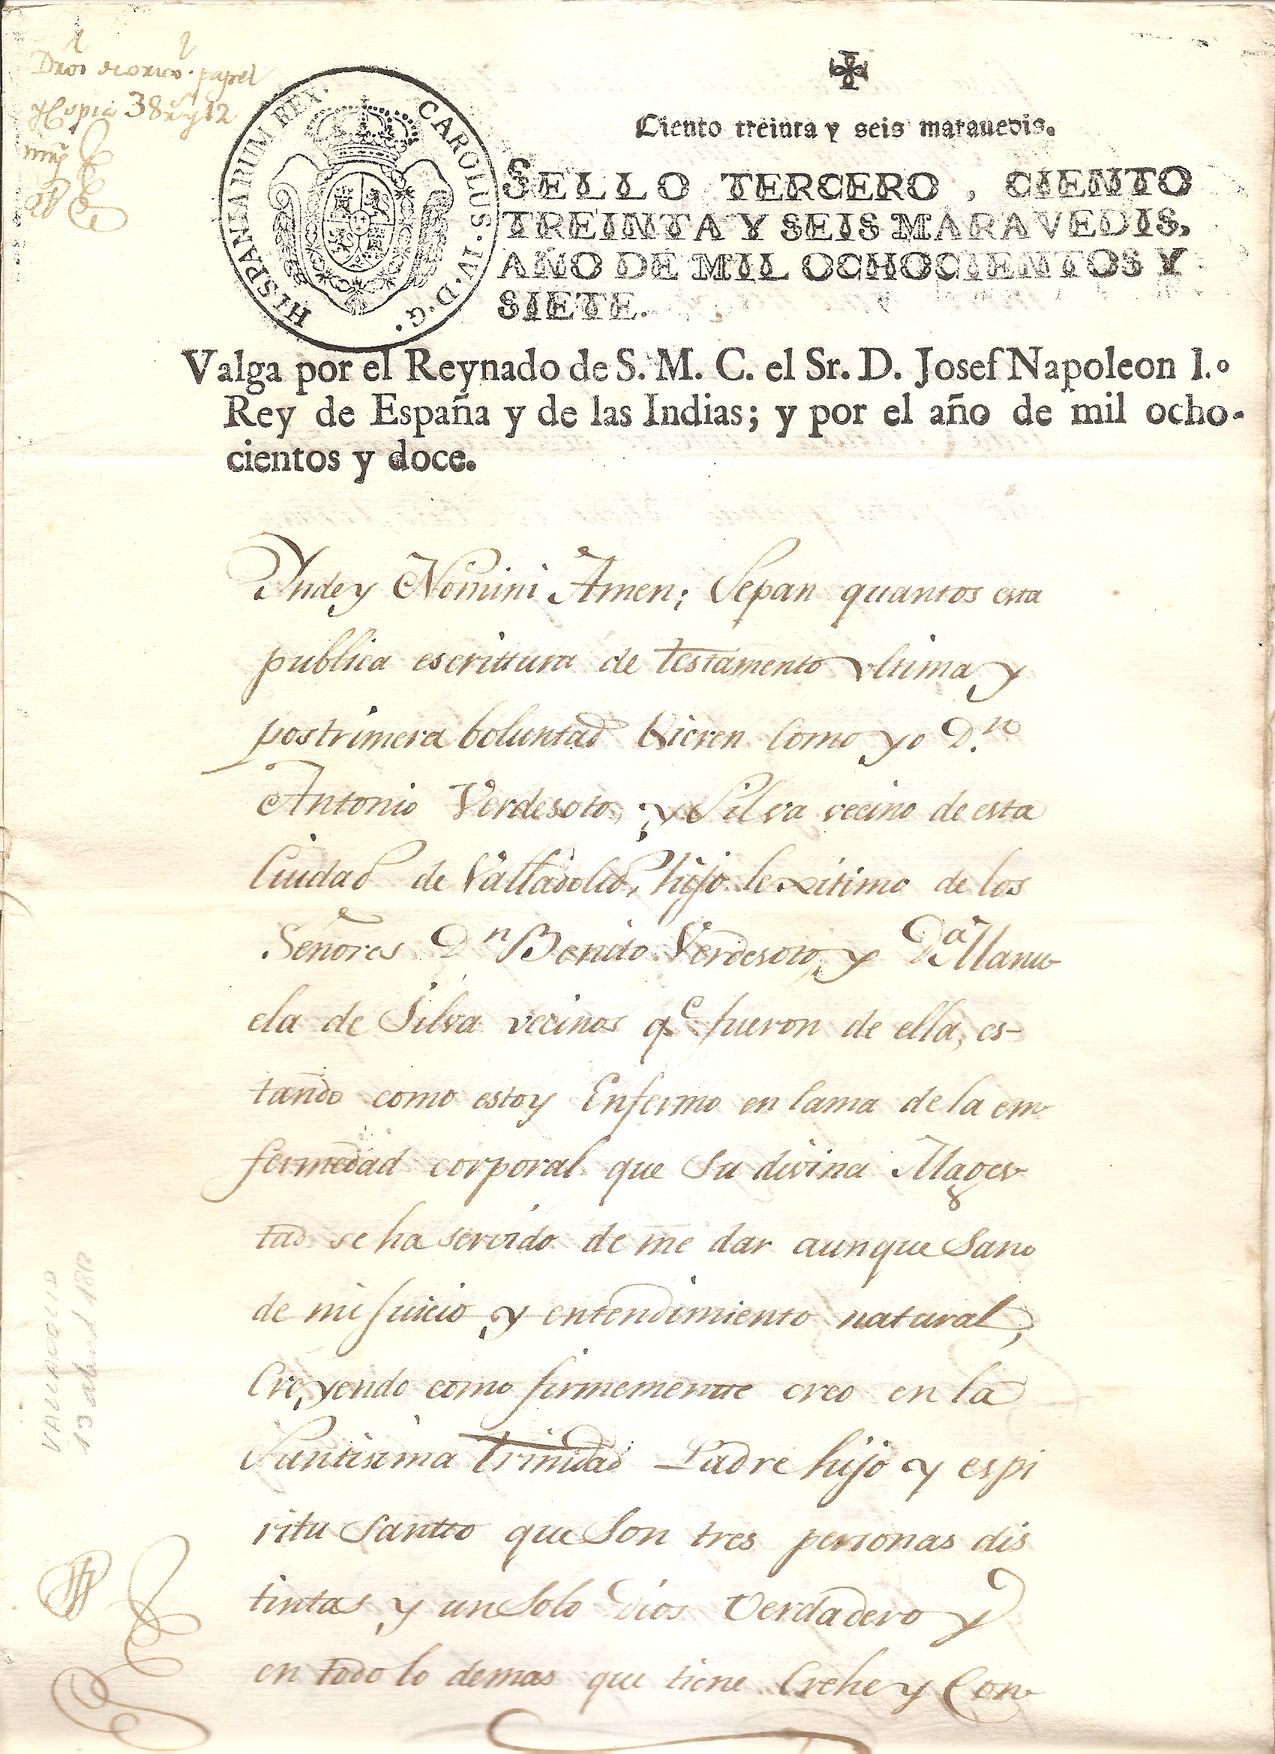 Dros de orixl. papel
y Copia 38 rs y 12
mrs
HISPANIARUM REX. CAROLUS. IV. D. G.
Ciento treinta y seis maravedis.
SELLO TERCERO, CIENTO
TREINTA Y SEIS MARAVEDIS,
AÑO DE MIL OCHOCIENTOS Y
SIETE.
Valga por el Reynado de S. M. C. el Sr. D. Josef Napoleon I.º
Rey de España y de las Indias; y por el año de mil ocho-
cientos y doce.
Yndey Nomini Amen; Sepan quantos esta
publica escrittura de testamento vltima y
postrimera boluntad Vieren Como yo D.n
Antonio Verdesoto, y Silva vecino de esta
Ciudad de Valladolid, hijo lexitimo de los
Señores Dn Benito Verdesoto, y Da Manu
ela de Silva vecinos qe fueron de ella, es-
tando como estoy Enfermo en Cama de la en
fermedad corporal que Su divina Mages
tad se ha servido de me dar aunque Sano
de mi Juicio y entendimiento natural,
Creyendo como firmemente creo en la
Santisima Trinidad Padre hijo y espi
ritu Santto que Son tres personas dis
tintas y un Solo Dios Verdadero y
en todo lo demas que tiene Crehe y Con
VALLADOLID
13 abril 1812